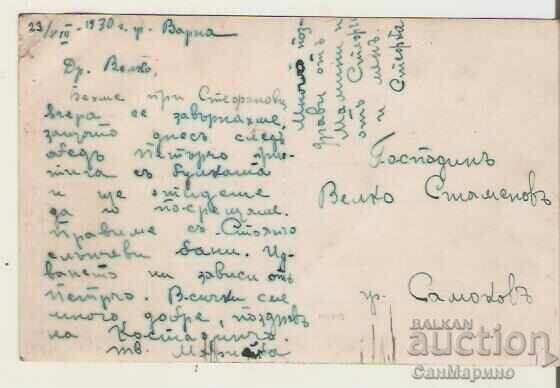 23/VIII - 1930 г. гр. Варна
Др. Велко,
Бехме при Стефановi
вчера се завърнахме,
защото днесъ следъ
обедъ Петърчо при-
тига съ булката
и ще отидеме
да го посрещаме.
Правиме съ Стоянчо
слънчеви бани. Ид-
ването ни зависи отъ
Петърчо. Всички сме
много добре, поздравъ
на Костадинчо.
тв. Марийка
Много поз-
драви отъ
Мамини и
отъ
и
Господинъ
Велко Стаменовъ
гр. Самоковъ
BALKAN
auction
СанМарино